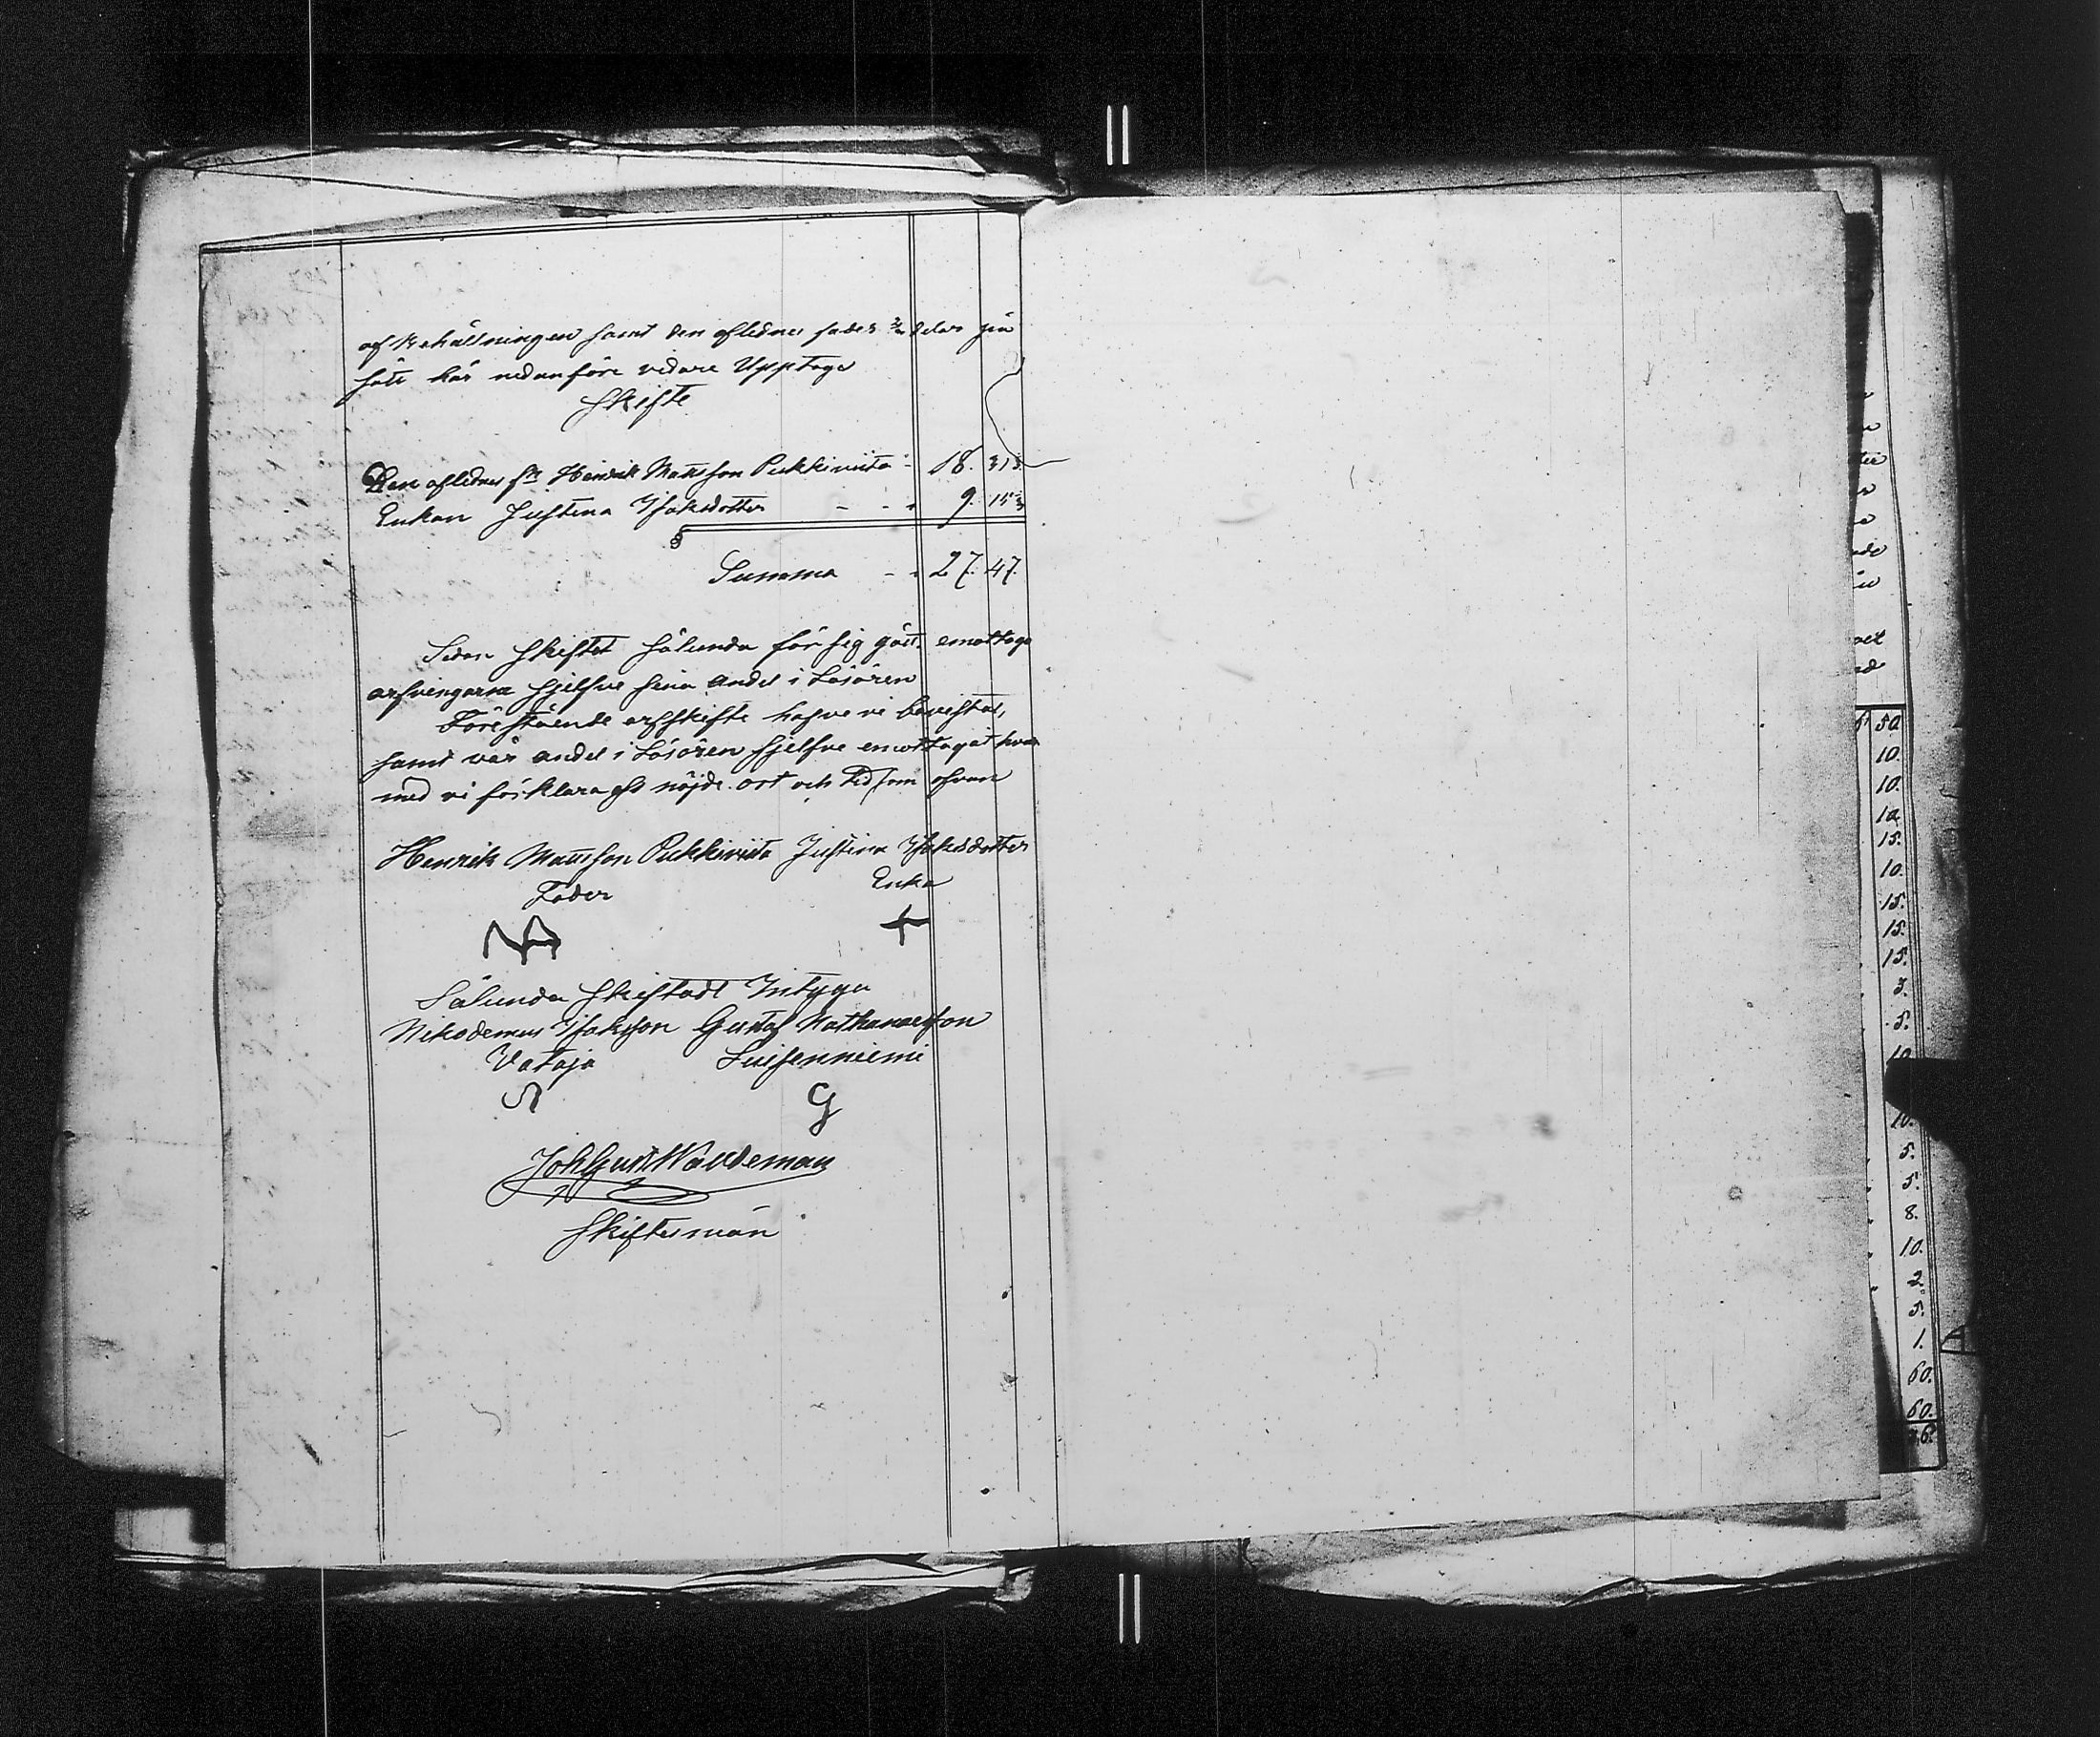 af Behållningen samt den aflednes fader 2/3 delar på
sätt här nedanföre vidare Upptoges
Skifte
Den aflednes fr Henrik Mattsson Pukkiniita - 18. 31 1/3
Enkan Justina Isaksdotter - - - 9. 15 2/3
Summa - - 27. 47.
Sedan Skiftet sålunda för sig gått emottogo
arfvingarna sjelfve sina andel i Lösören
Föreståënde arfskifte hafve vi bevistat,
samt vår andel i Lösören sjelfve emottagat hvar
med vi förklara oss nöjde. ort och tid som ofvan
Henrik Mattsson Pukkiniita Justina Isaksdotter
Fader Enka
Sålunda Skiftadt Intyga
Nikodemus Isaksson Gustaf Nathanaelsson
Vataja Luisenniemi
N G
Joh Gust Waldeman
Skiftesman
50
10.
10.
10
15.
10.
15.
15.
15.
3.
5.
10
10.
5.
5.
8.
10.
2.
5.
1.
60.
60.